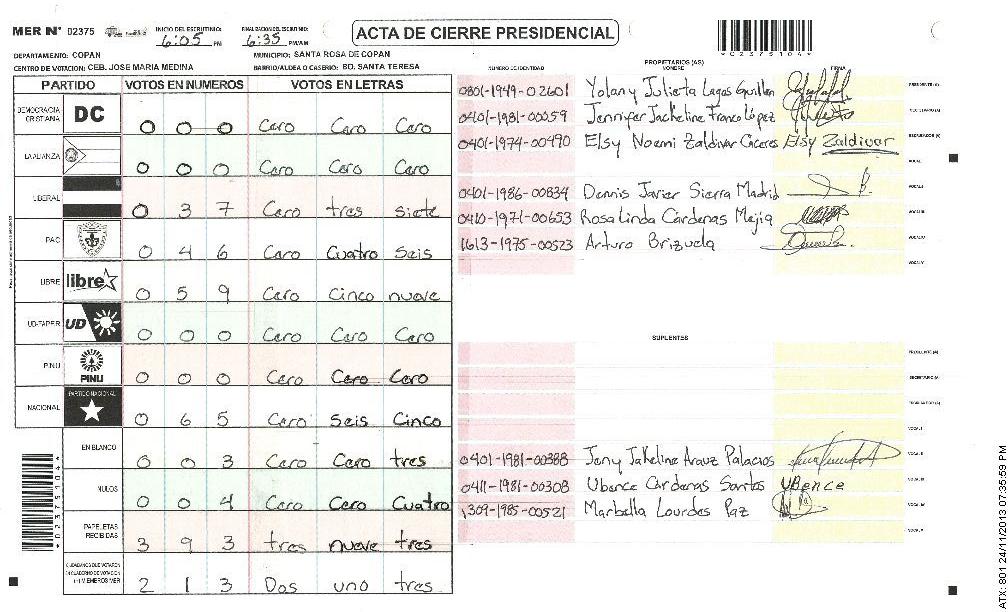 MER Nº 02375
INICIO DEL ESCRUTINIO: 6:05 PM
FINALIZACION DEL ESCRUTINIO: 6:35 PM/AM
ACTA DE CIERRE PRESIDENCIAL
02375104
DEPARTAMENTO: COPAN
MUNICIPIO: SANTA ROSA DE COPAN
CENTRO DE VOTACION: CEB. JOSE MARIA MEDINA
BARRIO/ALDEA O CASERIO: BO. SANTA TERESA
PARTIDO VOTOS EN NUMEROS VOTOS EN LETRAS
DEMOCRACIA CRISTIANA DC 0 0 0 Cero Cero Cero
LA ALIANZA 0 0 0 Cero Cero Cero
LIBERAL 0 3 7 Cero tres siete
PAC 0 4 6 Cero Cuatro Seis
LIBRE libre 0 5 9 Cero Cinco nueve
UD-FAPER UD 0 0 0 Cero Cero Cero
PINU PINU 0 0 0 Cero Cero Cero
NACIONAL PARTIDO NACIONAL 0 6 5 Cero Seis Cinco
EN BLANCO 0 0 3 Cero Cero tres
NULOS 0 0 4 Cero Cero Cuatro
PAPELETAS RECIBIDAS 3 9 3 tres nueve tres
CIUDADANOS QUE VOTARON EN CUADERNO DE VOTACION (+) MIEMBROS MER 2 1 3 Dos uno tres
02375104
NUMERO DE IDENTIDAD PROPIETARIOS (AS) NOMBRE FIRMA
0801-1949-02601 Yolany Julieta Lagos Guillen PRESIDENTE (A)
0401-1981-00059 Jennifer Jackeline Franco López SECRETARIO (A)
0401-1974-00490 Elsy Noemi Zaldivar Caceres Elsy Zaldivar ESCRUTADOR (A)
VOCAL I
0401-1986-00834 Dennis Javier Sierra Madrid VOCAL II
0410-1971-00653 Rosalinda Cárdenas Mejia VOCAL III
1613-1975-00523 Arturo Brizuela VOCAL IV
VOCAL V
SUPLENTES
PRESIDENTE (A)
SECRETARIO (A)
ESCRUTADOR (A)
VOCAL I
0401-1981-00388 Jeny Jakeline Arauz Palacios VOCAL II
0411-1981-00308 Ubence Cardenas Santos Ubence VOCAL III
1309-1985-00521 Marbella Lourdes Paz VOCAL IV
VOCAL V
ATX: 801 24/11/2013 07:35:59 PM